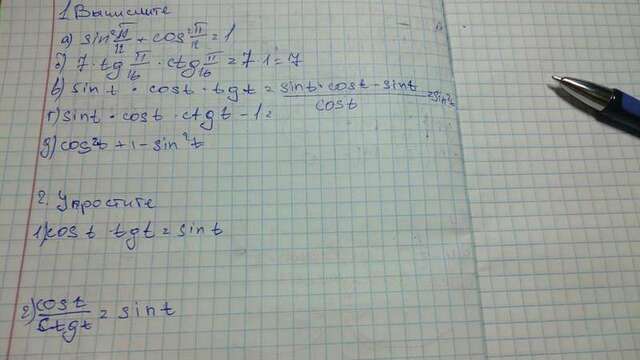 1 Вычислите
а) sin² π/12 + cos² π/12 = 1
б) 7 · tg π/16 · ctg π/16 = 7 · 1 = 7
в) sin t · cos t · tg t = sin t · cos t - sin t / cos t = sin² t
г) sin t · cos t · ctg t - 1 =
д) cos² t + 1 - sin² t
2. Упростите
1) cos t · tg t = sin t
2) cos t / ctg t = sin t